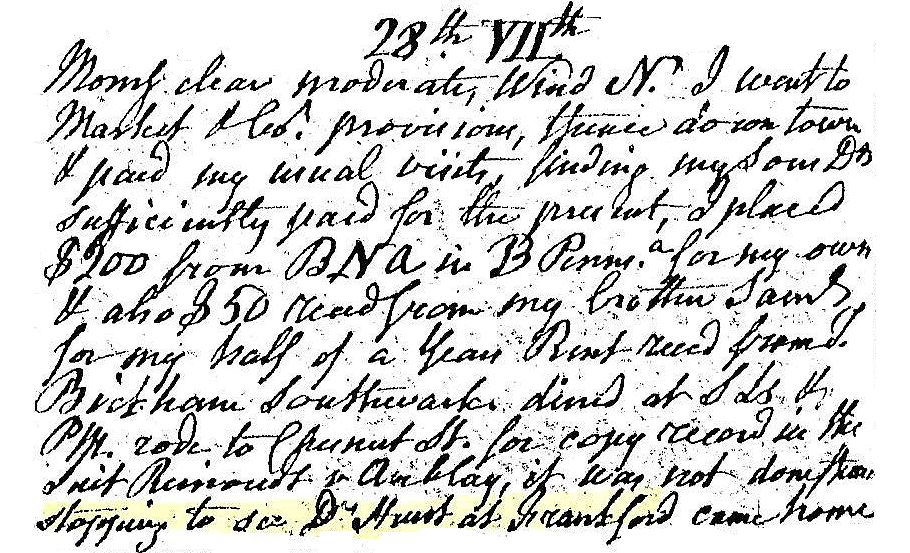 28th VIIth
Morng clear moderate, Wind N. I went to
Market & Got provisions, thence down town
& paid my usual visits, finding my Son Dd
sufficiently paid for the present, I placed
$200 from BNA in B Penna. for my own
& also $50 recd from my brother Saml,
for my half of a Year Rent recd from J.
Bickham Southwark. dined at S Ls &
PM. rode to Chesnut St. for copy record in the
suit v Aublay, it was not done, then
stopping to see Dr Hurst at Frankford came home